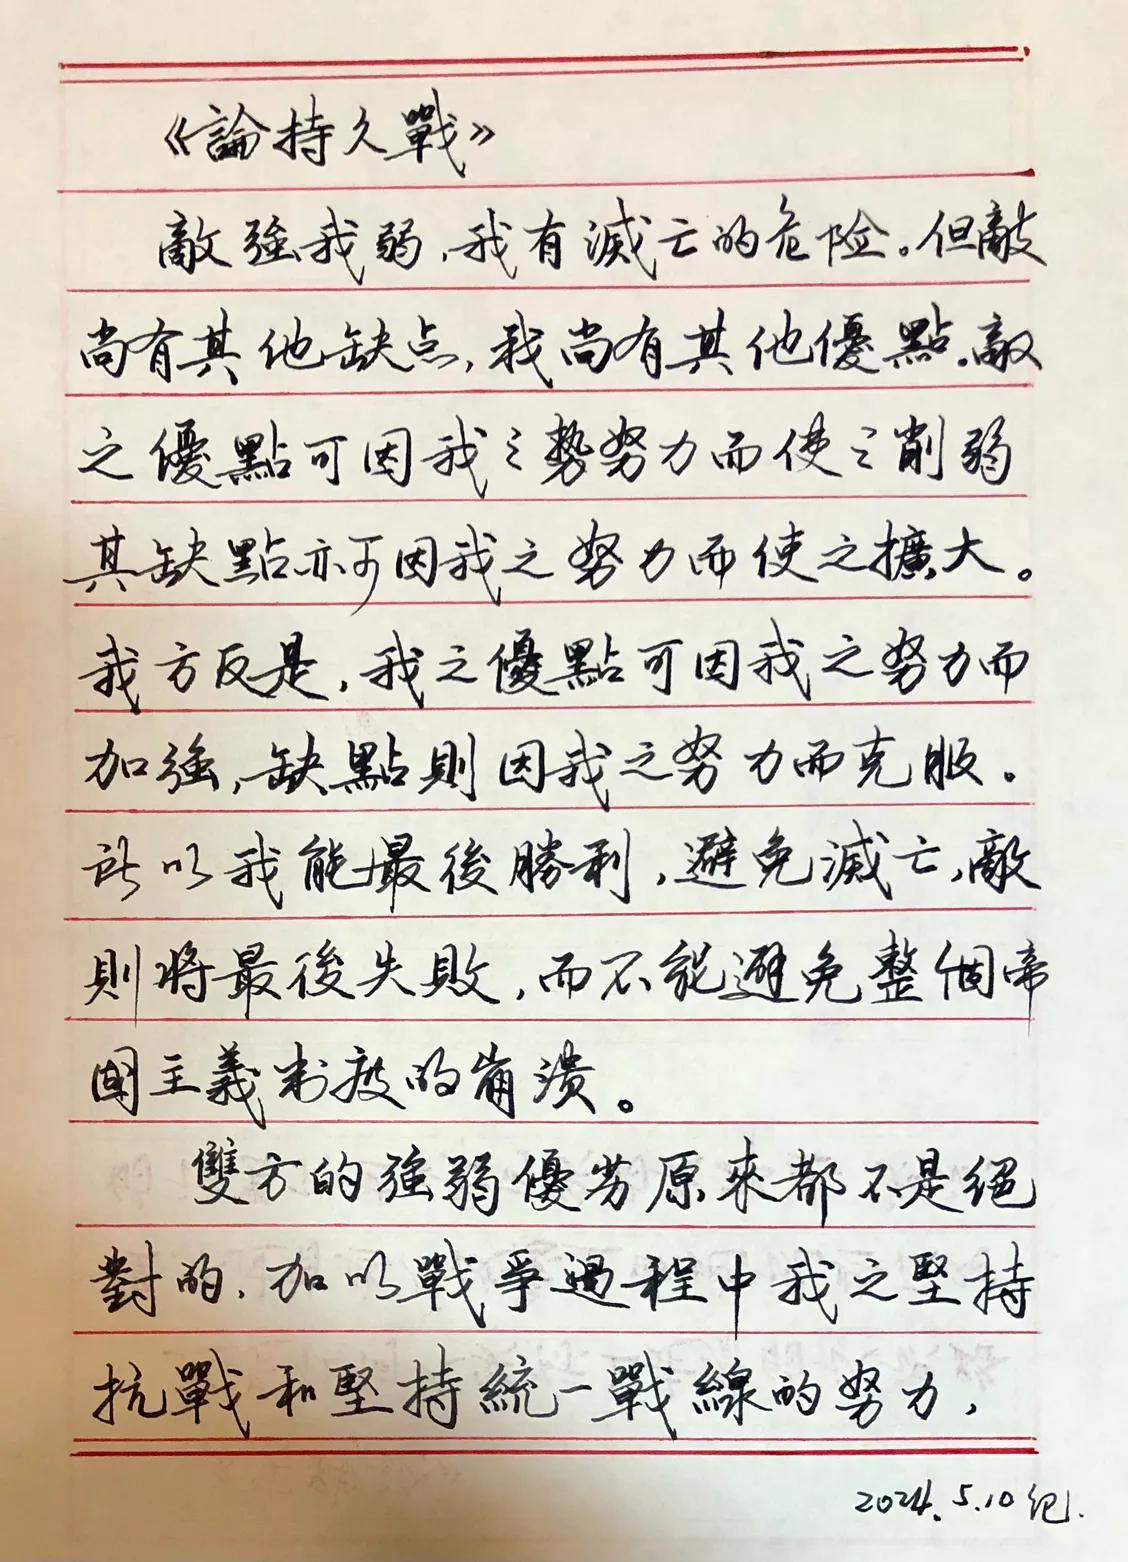 《論持久戰》
敵強我弱,我有滅亡的危险。但敵
尚有其他缺点,我尚有其他優點.敵
之優點可因我之勢努力而使之削弱
其缺點亦可因我之努力而使之擴大。
我方反是,我之優點可因我之努力而
加強,缺點則因我之努力而克服。
所以我能最後勝利,避免滅亡,敵
則將最後失敗,而不能避免整個帝
國主義制度的崩潰。
雙方的強弱優劣原來都不是絕
對的,加以戰爭過程中我之堅持
抗戰和堅持統一戰線的努力,
2024.5.10 紀.